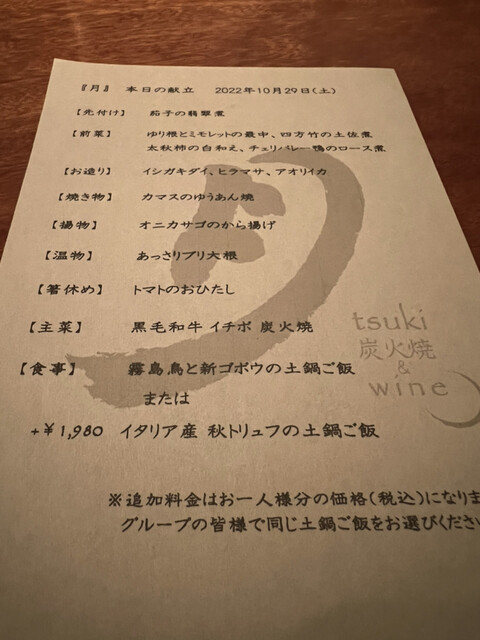 『月』 本日の献立 2022年10月29日(土)
【先付け】 茄子の翡翠煮
【前菜】 ゆり根とミモレットの最中、四方竹の土佐煮
太秋柿の白和え、チェリバレー鴨のロース煮
【お造り】 イシガキダイ、ヒラマサ、アオリイカ
【焼き物】 カマスのゆうあん焼
【揚物】 オニカサゴのから揚げ
【温物】 あっさりブリ大根
【箸休め】 トマトのおひたし
【主菜】 黒毛和牛 イチボ 炭火焼
【食事】 霧島鳥と新ゴボウの土鍋ご飯
または
+¥1,980 イタリア産 秋トリュフの土鍋ご飯
※追加料金はお一人様分の価格(税込)になりま
グループの皆様で同じ土鍋ご飯をお選びくださ
月
tsuki
炭火焼
&
wine